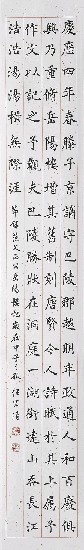 慶歷四年春滕子京謫守巴陵郡越明年政通人和百廢俱
興乃重修岳陽樓增其舊制刻唐賢今人詩賦於其上屬予
作文以記之予觀夫巴陵勝狀在洞庭一湖銜遠山吞長江
浩浩湯湯橫無際涯